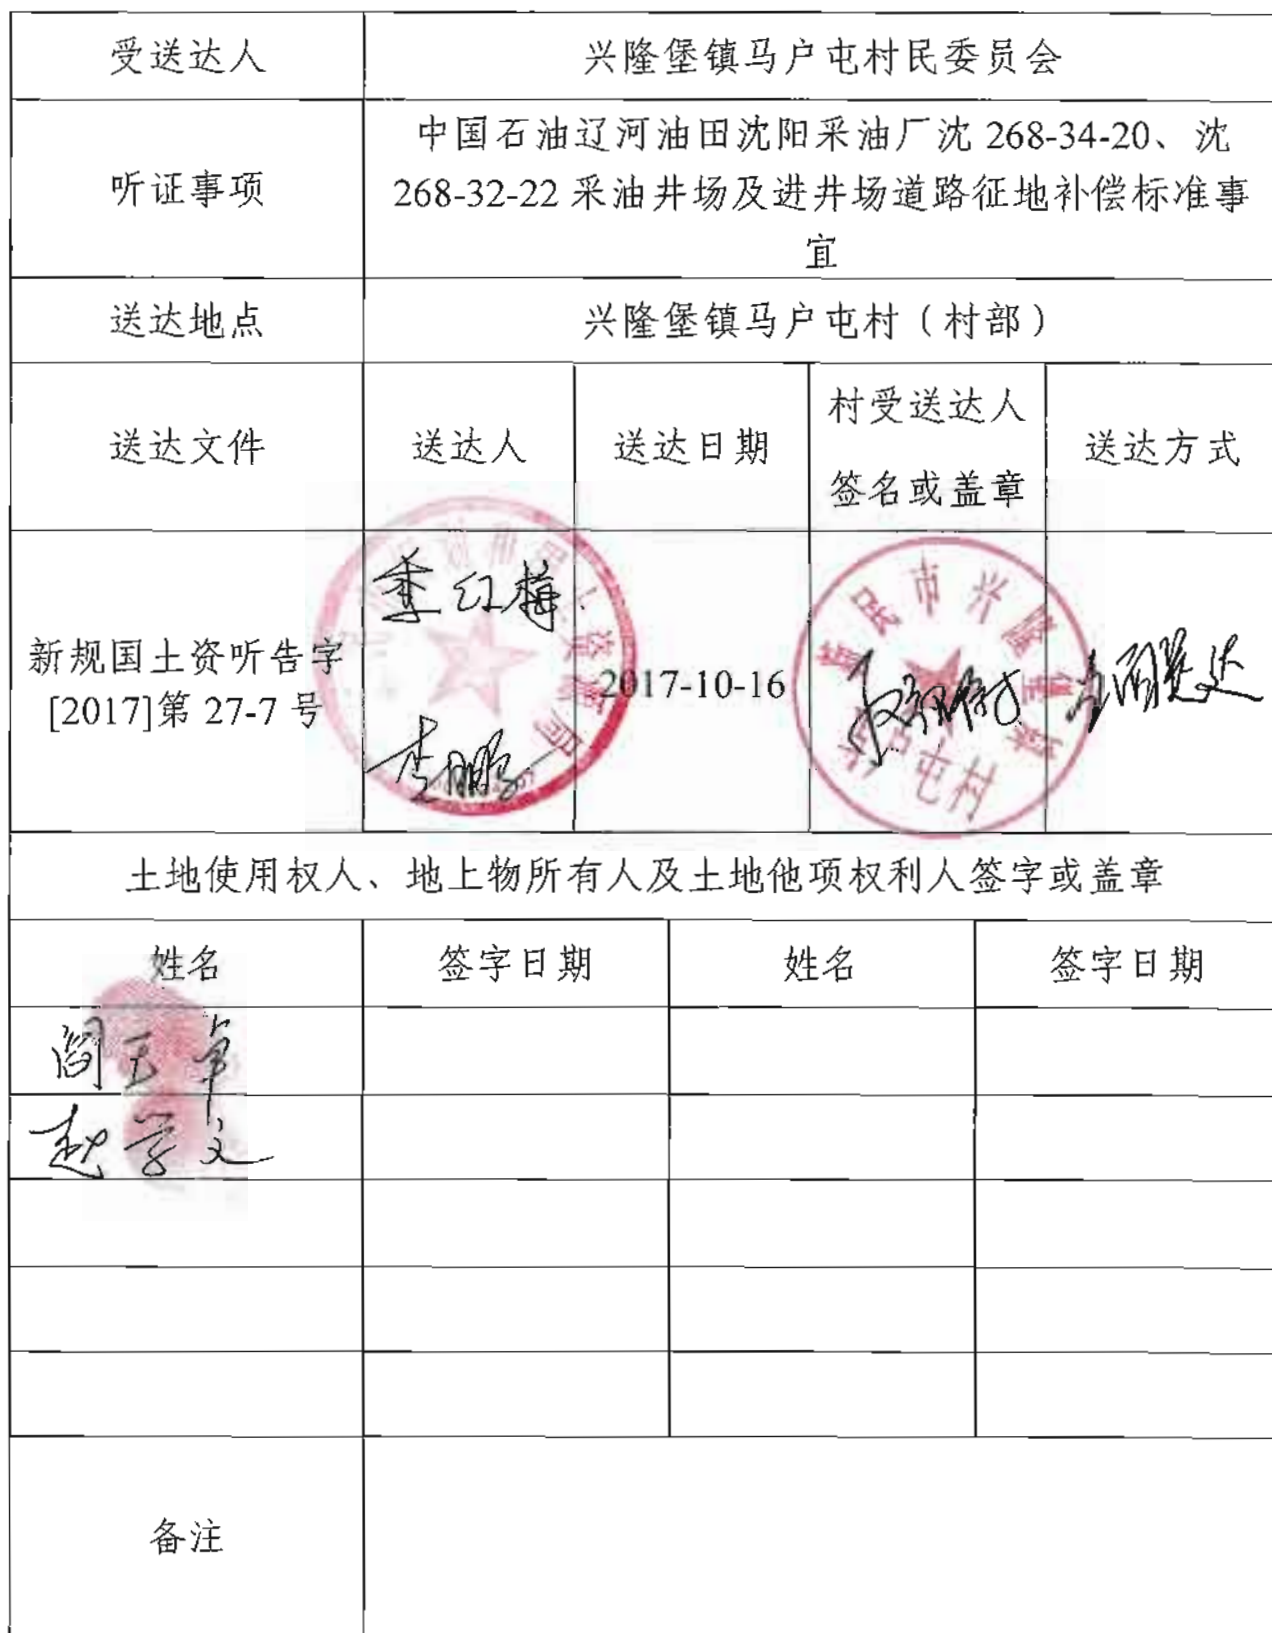 受送达人
兴隆堡镇马户屯村民委员会
听证事项
中国石油辽河油田沈阳采油厂沈 268-34-20、沈
268-32-22 采油井场及进井场道路征地补偿标准事
宜
送达地点
兴隆堡镇马户屯村（村部）
送达文件
送达人
送达日期
村受送达人
签名或盖章
送达方式
新规国土资听告字
[2017]第 27-7 号
季红梅
李鹏
2017-10-16
新民市兴隆堡镇
马户屯村
直接送达
土地使用权人、地上物所有人及土地他项权利人签字或盖章
姓名
签字日期
姓名
签字日期
阎玉卓
赵学文
备注